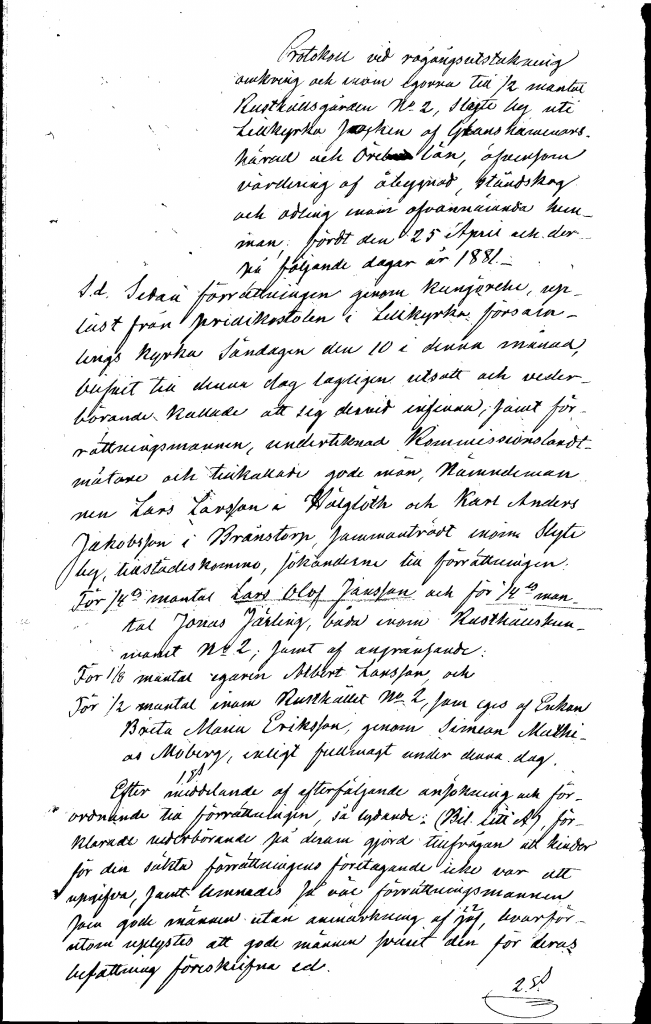 Protokoll vid rågångsutstakning
omkring och inom egorna till 1/2 mantal
Rusthållsgården No 2, Slyte by, uti
Lillkyrka socken af Glanshammars-
härad och Örebro län, äfvensom
värdering af åbygnad, ståndskog
och odling inom ofvannämnda hem-
man, fördt den 25 April och der-
på följande dagar år 1881.-
S.d. Sedan förrättningen genom kungörelse, up-
läst från predikostolen i Lillkyrka försam-
lings kyrka Söndagen den 10 i denna månad,
blifvit till denna dag lagligen utsatt och veder-
börande kallade att sig dervid infinna, samt för-
rättningsmannen, undertecknad Kommissionslandt-
mätare och tillkallade gode män, Nämndeman
nen Lars Larsson i och Karl Anders
Jakobsson i Bränstorp, sammanträdt inom Slyte
by, tillstädeskommo, sökanderne till förrättningen.
För 1/4 mantal Lars Olof Jansson och för 1/4 man-
tal Jonas Järling, både inom Rusthållshem-
manet No 2, samt af angränsande:
För 1/8 mantal egaren Albert Larsson, och
För 1/2 mantal inom Rusthållet No 2, som eges af Enkan
Brita Maria Eriksson, genom Simeon Mathi-
as Moberg, enligt fullmagt under denna dag.
1 §
Efter meddelande af efterföljande ansökning och för-
ordnande till förrättningen, så lydande: (Bil. Litt A), för-
klarade vederbörande på derom gjord tillfrågan att hinder
för den sökta förrättningens företagande icke var att
uppgifva, samt lemnades så väl förrättningsmannen
som gode männen utan anmärkning af jäf, hvarför-
utom uplystes att gode männen svurit den för deras
befattning föreskrifna ed.
2 §